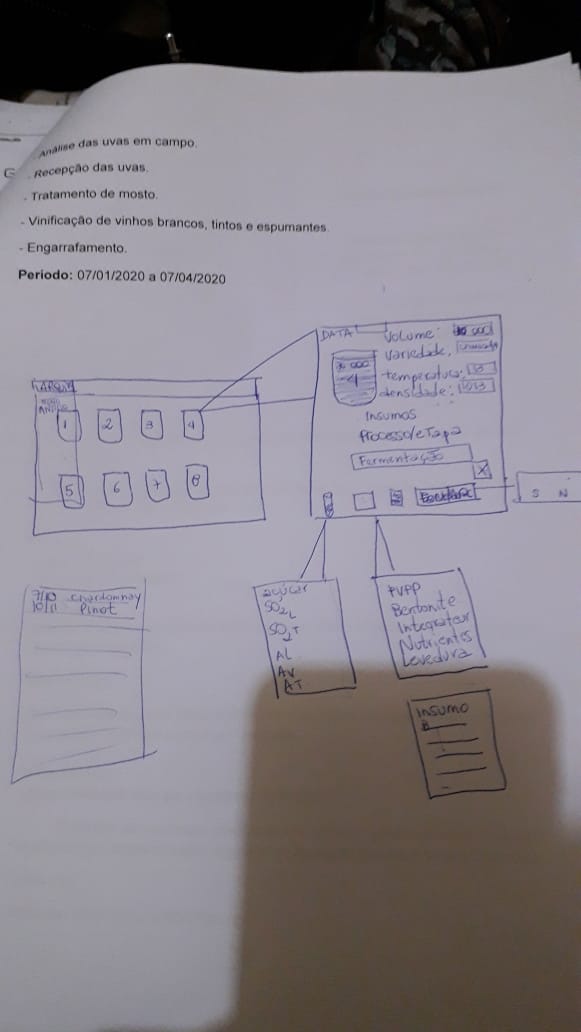 . Análise das uvas em campo.
G . Recepção das uvas.
- Tratamento de mosto.
- Vinificação de vinhos brancos, tintos e espumantes.
- Engarrafamento.
Período: 07/01/2020 a 07/04/2020
DATA
Volume:
variedade,
temperatura:
densidade:
4
Insumos
Processo/eTapa
Fermentação
X
S N
1 2 3 4
5 6 7 8
7/10 Chardonnay
10/11 Pinot
açúcar
SO2L
SO2T
AL
AV
AT
PVPP
Bentonite
Integrateur
Nutrientes
Levedura
INSUMO